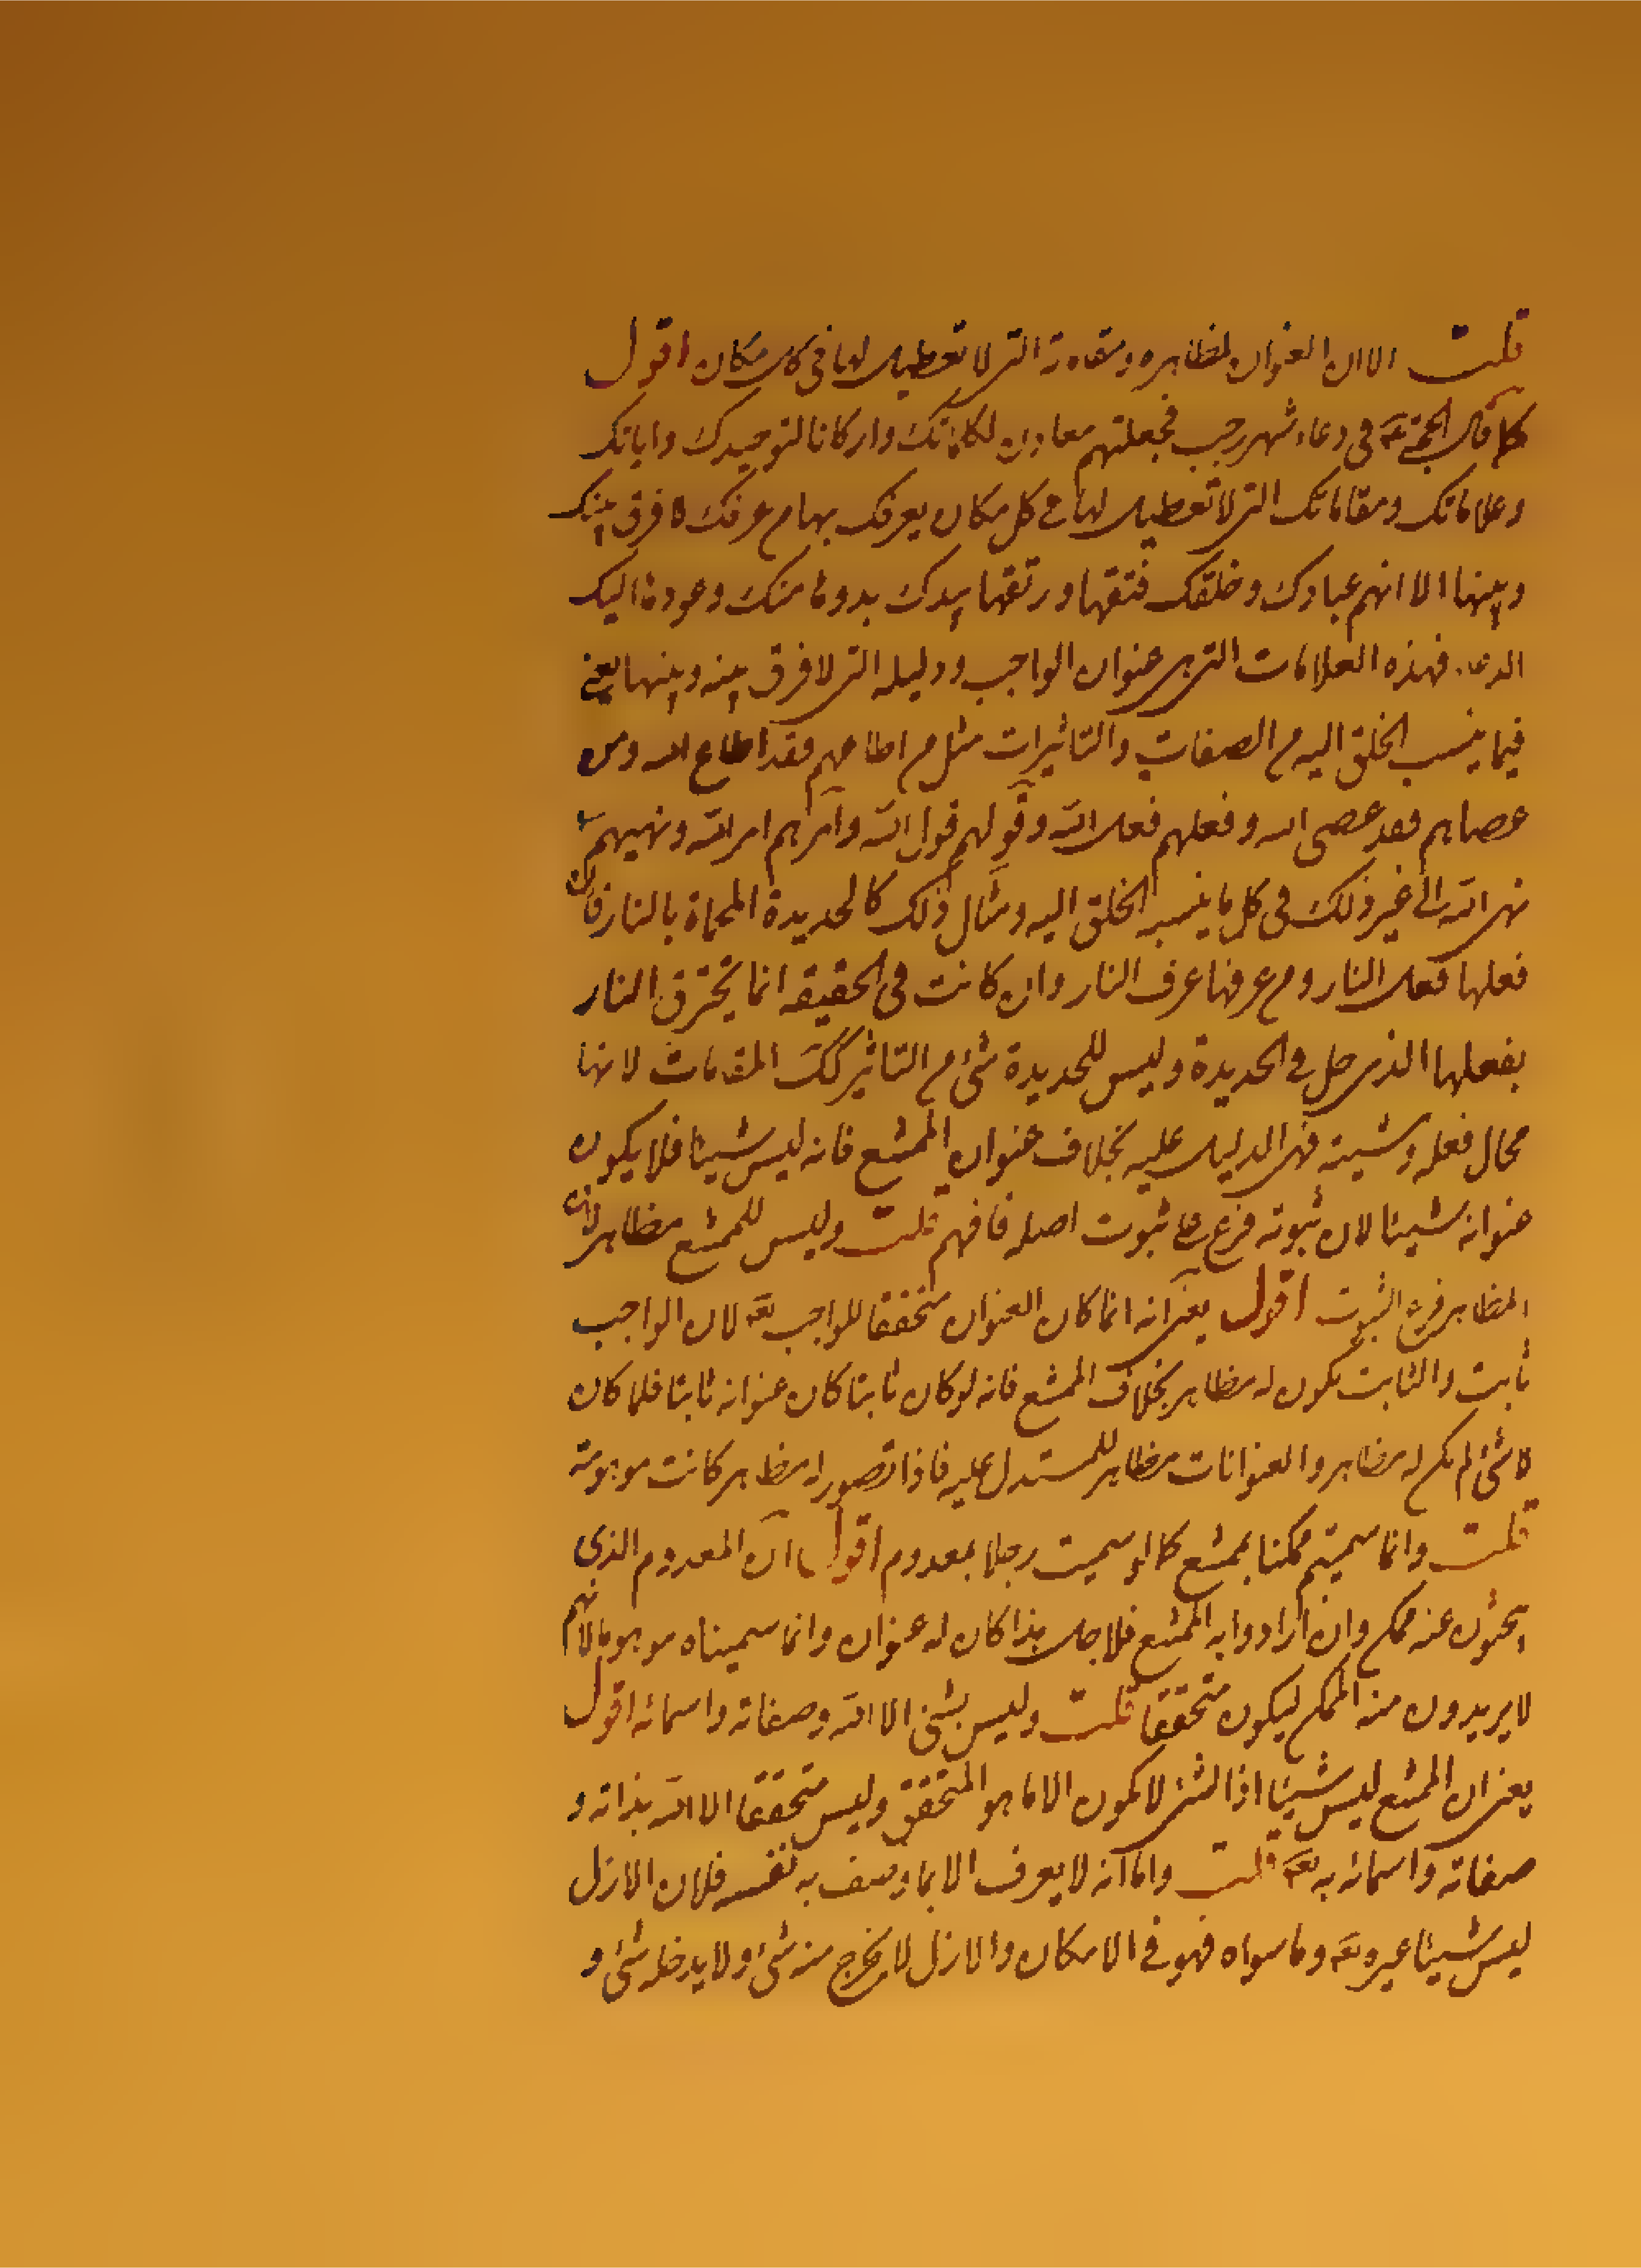 قلت الا ان العنوان لمظاهره ومقاماته التى لا تعطيل لها فى كل مكان اقول
كما قال الحجة ع فى دعاء شهر رجب فجعلتهم معادن لكلماتك واركانا لتوحيدك واياتك
وعلاماتك ومقاماتك التى لا تعطيل لها فى كل مكان يعرفك بها من عرفك لا فرق بينك
وبينها الا انهم عبادك وخلقك فتقها ورتقها بيدك بدوها منك وعودها اليك
الدعاء فهذه العلامات التى هى عنوان الواجب ودليله التى لا فرق بينه وبينها يعنى
فيما ينسب الخلق اليه من الصفات والتاثيرات مثل من اطاعهم فقد اطاع الله ومن
عصاهم فقد عصى الله وفعلهم فعل الله وقولهم قول الله وامرهم امر الله ونهيهم
نهى الله الى غير ذلك فى كل ما ينسبه الخلق اليه ومثال ذلك كالحديدة المحماة بالنار فان
فعلها فعل النار ومن عرفها عرف النار وان كانت فى الحقيقه انما تحترق النار
بفعلها الذى حل فى الحديدة وليس للحديدة شئ من التاثير كك المقامات لانها
محال فعله ومشيته فهى الدليل عليه بخلاف عنوان الممتنع فانه ليس شيئا فلا يكون
عنوانه شيئا لان ثبوته فرع على ثبوت اصله فافهم قلت وليس للممتنع مظاهر لان
المظاهر فرع الثبوت اقول يعنى انه انما كان العنوان متحققا للواجب تعه لان الواجب
ثابت والثابت يكون له مظاهر بخلاف الممتنع فانه لو كان ثابتا كان عنوانه ثابتا فلما كان
لا شئ لم يكن له مظاهر والعنوانات مظاهر للمستدل عليه فاذا تصور له مظاهر كانت موهومة
قلت وانما سميتم ممكنا بممتنع كما لو سميت رجلا بمعدوم اقول ان المعدوم الذى
يبحثون عنه ممكن وان ارادوا به الممتنع فلاجل هذا كان له عنوان وانما سميناه موهوما لانهم
لا يريدون منه الممكن ليكون متحققا قلت وليس بشئ الا الله وصفاته واسمائه اقول
يعنى ان الممتنع ليس شيئا اذ الشئ لا يكون الا ما هو المتحقق وليس متحققا الا الله بذاته و
صفاته واسمائه به تعه قلت واما انه لا يعرف الا بما وصف به نفسه فلان الازل
ليس شيئا غيره تعه وما سواه فهو فى الامكان والازل لا يخرج منه شئ ولا يدخله شئ و